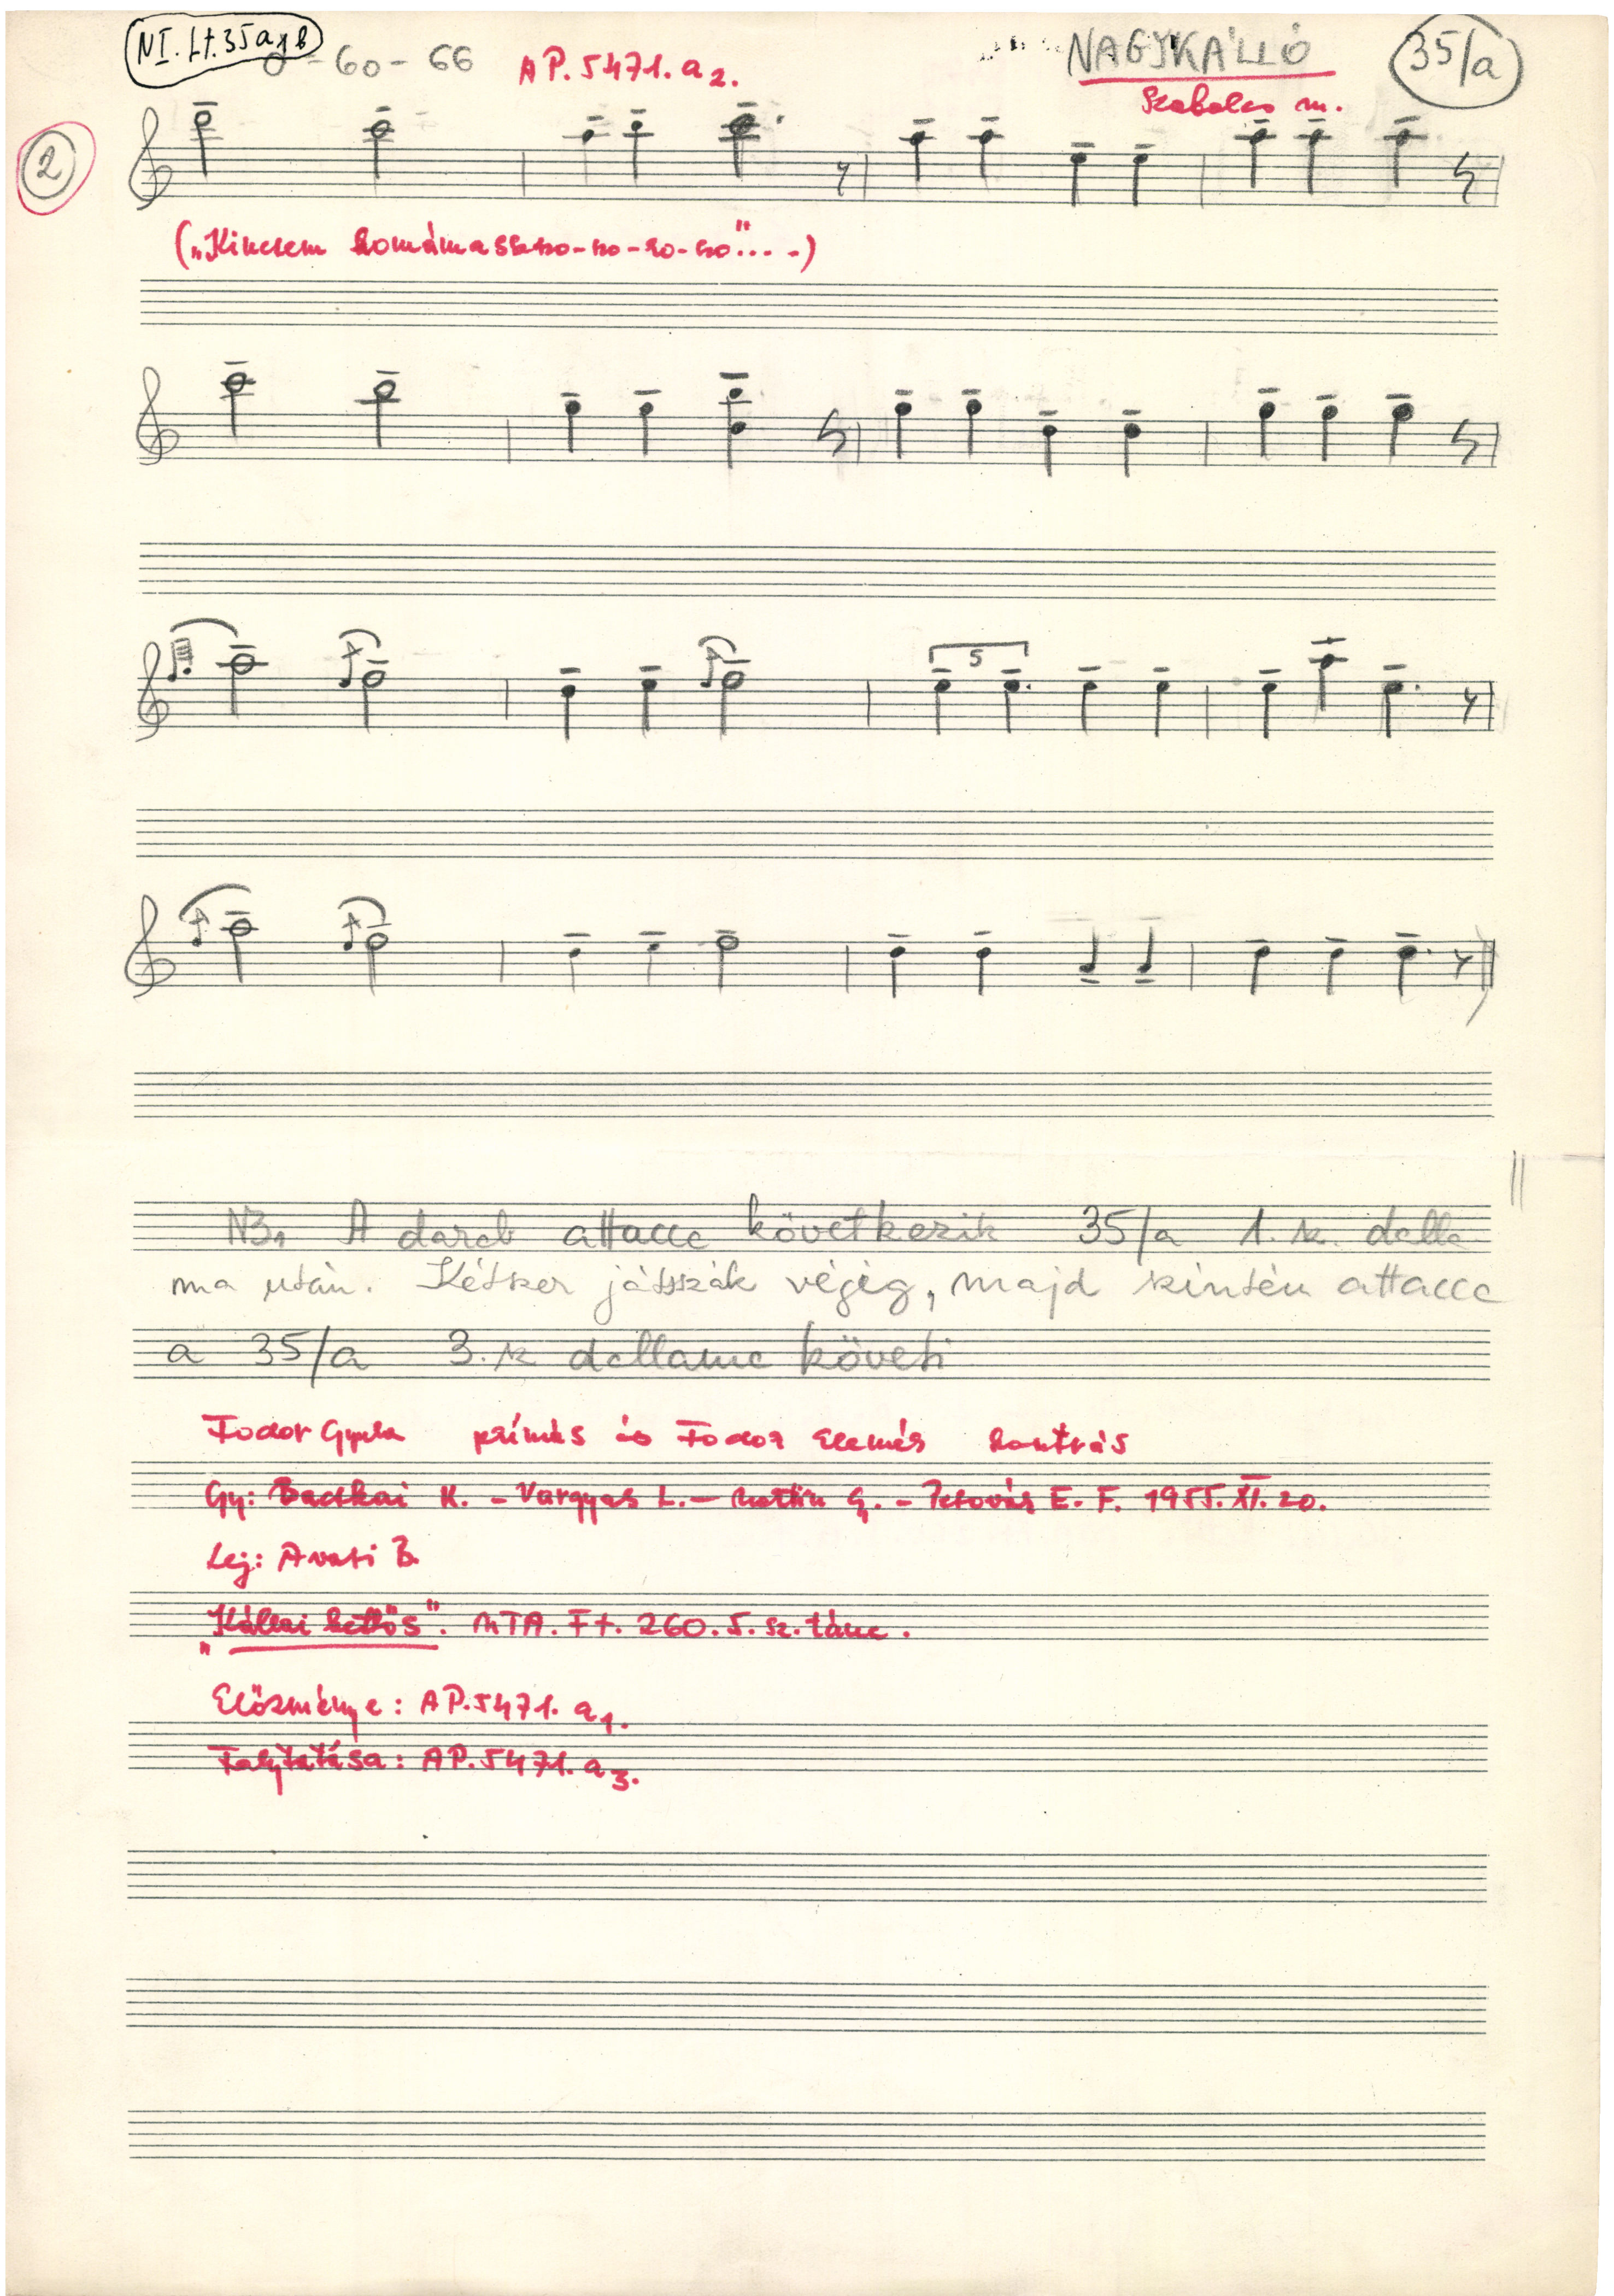 NI. Lt. 35 a, b
60-66
AP. 5471. a2.
NAGYKÁLLÓ
35/a
Szabolcs m.
2
("Kincsem komámassszo-zo-zo-zo".... )
5
NB. A darab attacca következik 35/a 1. sz. dalla
ma után. Kétszer játsszák végig, majd szintén attacca
a 35/a 3. sz dallama követi
Fodor Gyula prímás és Fodor Elemér kontrás
Gy: Bacskai K. - Vargyas L. - Martin G. - Pesovár E. F. 1955. XI. 20.
Lej: Avasi B.
"Kállai kettős". MTA. Ft. 260. 5. sz. tánc.
Előzménye: AP. 5471. a1.
Folytatása: AP. 5471. a3.